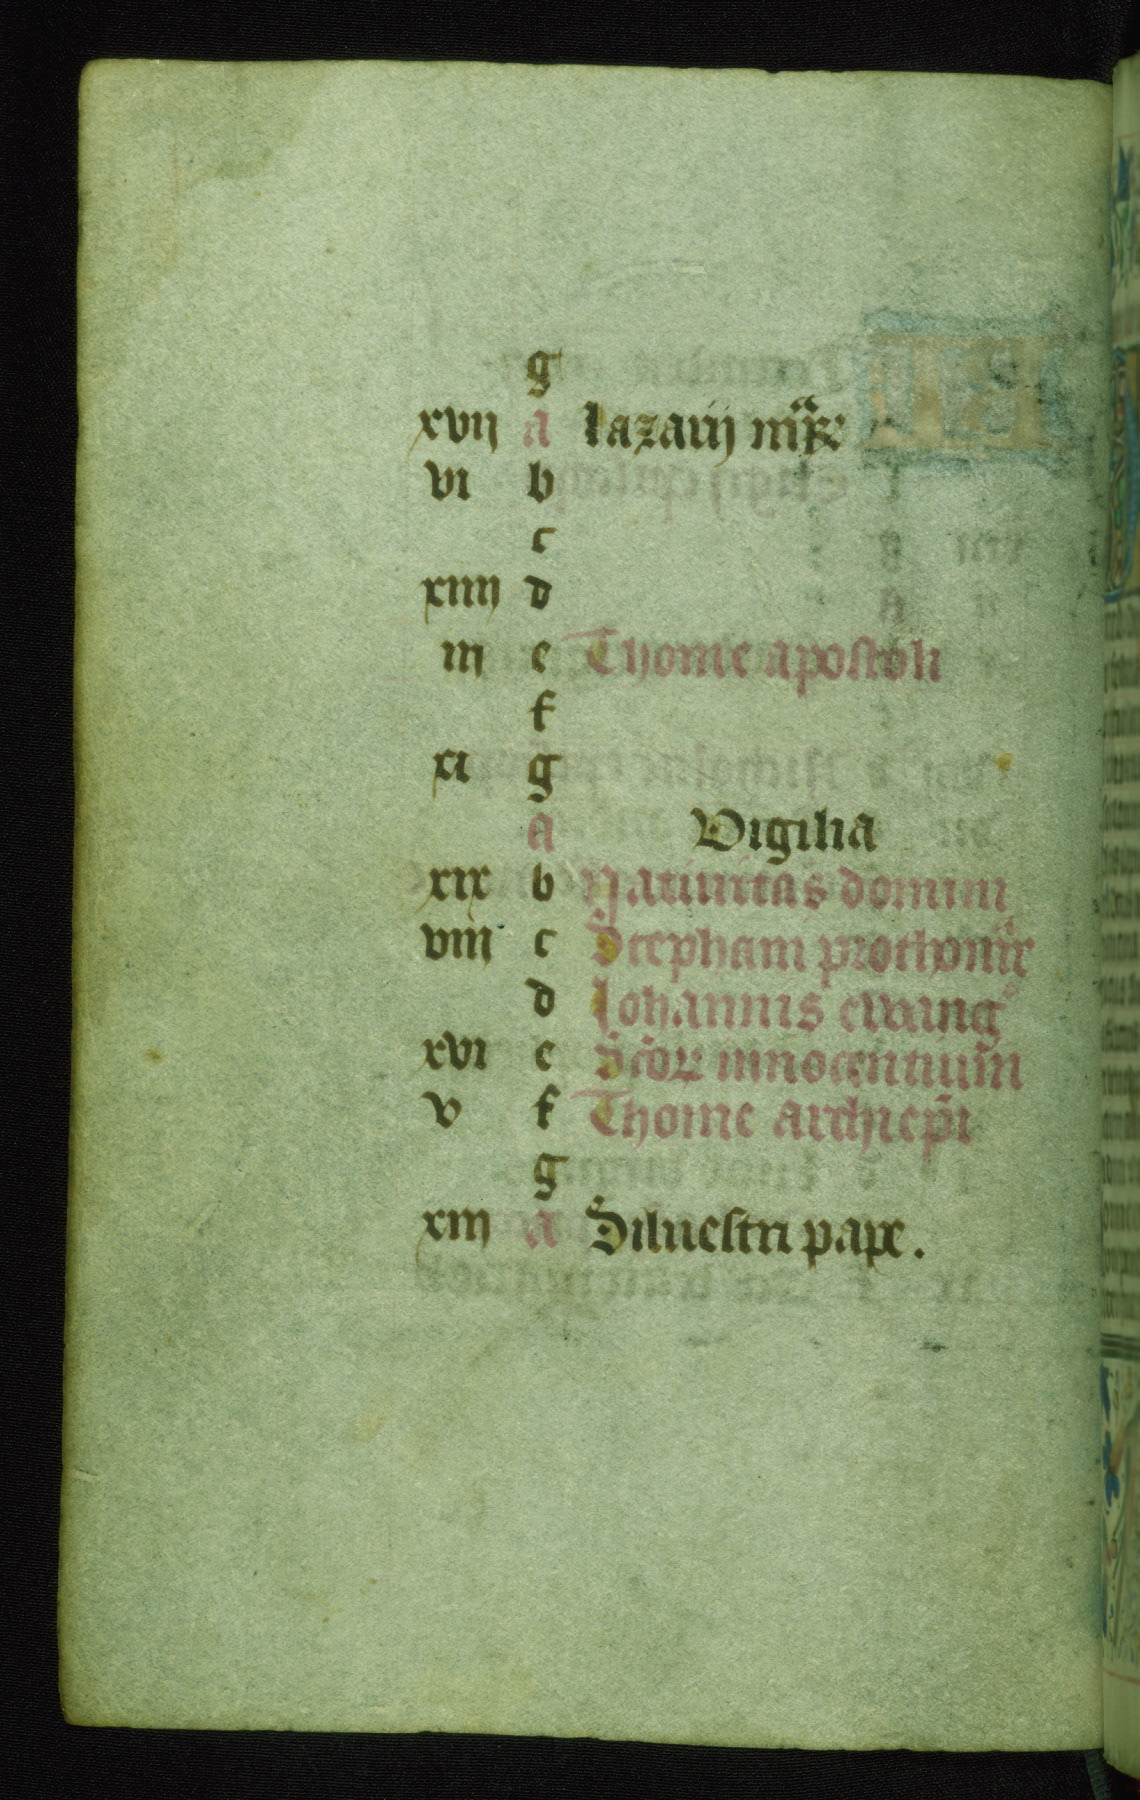 g
xvij a lazarij mr̃is
vi b
c
xiiij d
iij e Thome apostoli
f
xi g
a Vigilia
xix b Natiuitas domini
viij c Stephani prothom̃r
d Iohannis ewang
xvi e Scõꝝ innocentium
v f Thome archiepĩ
g
xiij a Siluestri pape.